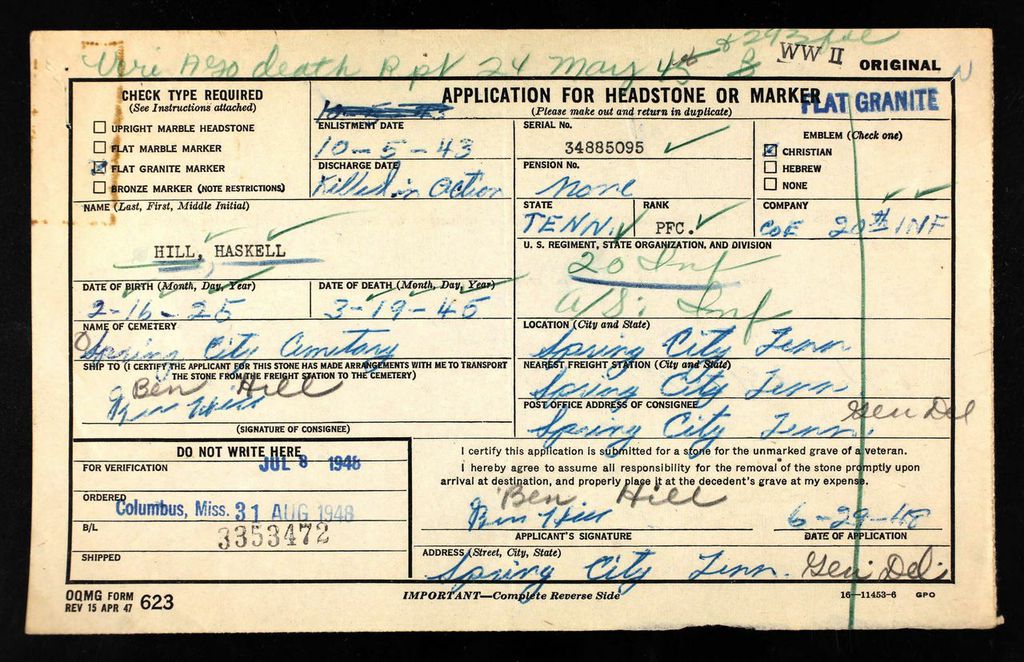 death Rpt 24 May 45
WW II
ORIGINAL
CHECK TYPE REQUIRED
(See Instructions attached)
UPRIGHT MARBLE HEADSTONE
FLAT MARBLE MARKER
FLAT GRANITE MARKER
BRONZE MARKER (NOTE RESTRICTIONS)
ENLISTMENT DATE
10-5-43
DISCHARGE DATE
Killed in Action
APPLICATION FOR HEADSTONE OR MARKER
(Please make out and return in duplicate)
FLAT GRANITE
SERIAL No.
34885095
PENSION No.
None
EMBLEM (Check one)
CHRISTIAN
HEBREW
NONE
NAME (Last, First, Middle Initial)
HILL, HASKELL
STATE
TENN.
RANK
PFC.
COMPANY
Co E 20th INF
U. S. REGIMENT, STATE ORGANIZATION, AND DIVISION
20 Inf
A/S: Inf
DATE OF BIRTH (Month, Day, Year)
2-16-25
DATE OF DEATH (Month, Day, Year)
3-19-45
NAME OF CEMETERY
Spring City Cemetary
LOCATION (City and State)
Spring City Tenn
SHIP TO (I CERTIFY THE APPLICANT FOR THIS STONE HAS MADE ARRANGEMENTS WITH ME TO TRANSPORT
THE STONE FROM THE FREIGHT STATION TO THE CEMETERY)
Ben Hill
Ben Hill
(SIGNATURE OF CONSIGNEE)
NEAREST FREIGHT STATION (City and State)
Spring City Tenn
POST OFFICE ADDRESS OF CONSIGNEE
Spring City Tenn. Gen Del
DO NOT WRITE HERE
FOR VERIFICATION
JUL 8 1948
ORDERED
Columbus, Miss. 31 AUG 1948
B/L
3353472
SHIPPED
I certify this application is submitted for a stone for the unmarked grave of a veteran.
I hereby agree to assume all responsibility for the removal of the stone promptly upon
arrival at destination, and properly place it at the decedent's grave at my expense.
Ben Hill
Ben Hill
6-29-48
APPLICANT'S SIGNATURE
DATE OF APPLICATION
ADDRESS (Street, City, State)
Spring City Tenn. Gen Del.
OQMG FORM
REV 15 APR 47 623
IMPORTANT—Complete Reverse Side
16—11453-6 GPO